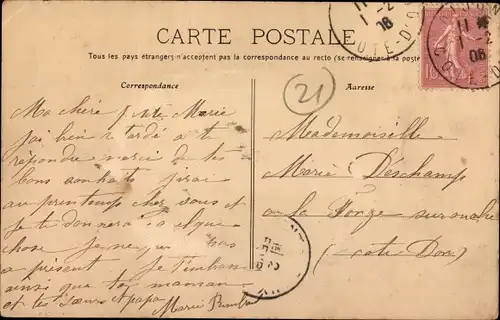 CARTE POSTALE
Tous les pays étrangers n'acceptent pas la correspondance au recto (se renseigner à la poste
Correspondance
Adresse
21
Ma chère petite Marie
j'ai bien tardé a te
répondre merci de tes
bons souhaits j'irai
au printemps chez vous et
je te donnerai quelque
chose je ne peux pas
a présent Je t'embrasse
ainsi que ta maman
et tes sœurs et papa
Marie
Mademoiselle
Marie Déschamp
a la Forge sur ouche
(cote Dor)
11
1-2
06
COTE-D'OR
11
-2
06
10